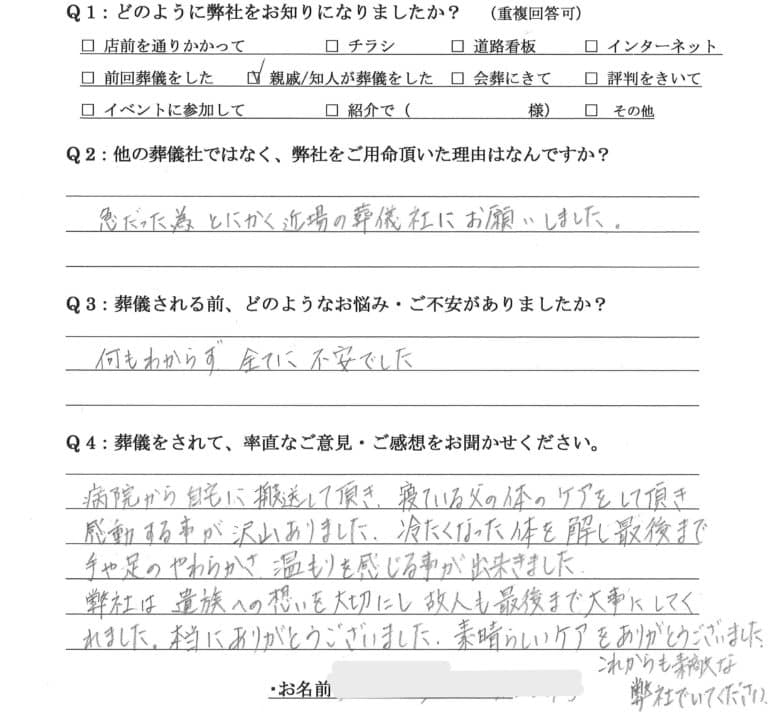 Q1：どのように弊社をお知りになりましたか？　（重複回答可）
□ 店前を通りかかって　□ チラシ　□ 道路看板　□ インターネット
□ 前回葬儀をした　☑ 親戚/知人が葬儀をした　□ 会葬にきて　□ 評判をきいて
□ イベントに参加して　□ 紹介で（　　　　　　様）　□ その他
Q2：他の葬儀社ではなく、弊社をご用命頂いた理由はなんですか？
急だった為、とにかく近場の葬儀社にお願いしました。
Q3：葬儀される前、どのようなお悩み・ご不安がありましたか？
何もわからず 全てに 不安でした
Q4：葬儀をされて、率直なご意見・ご感想をお聞かせください。
病院から自宅に搬送して頂き、寝ている父の体のケアをして頂き
感動する事が沢山ありました。冷たくなった体を解し最後まで
手や足のやわらかさ、温もりを感じる事が出来きました。
弊社は遺族への想いを大切にし故人も最後まで大事にしてく
れました。本当にありがとうございました。素晴らしいケアをありがとうございました
これからも素敵な
弊社でいてください。
・お名前